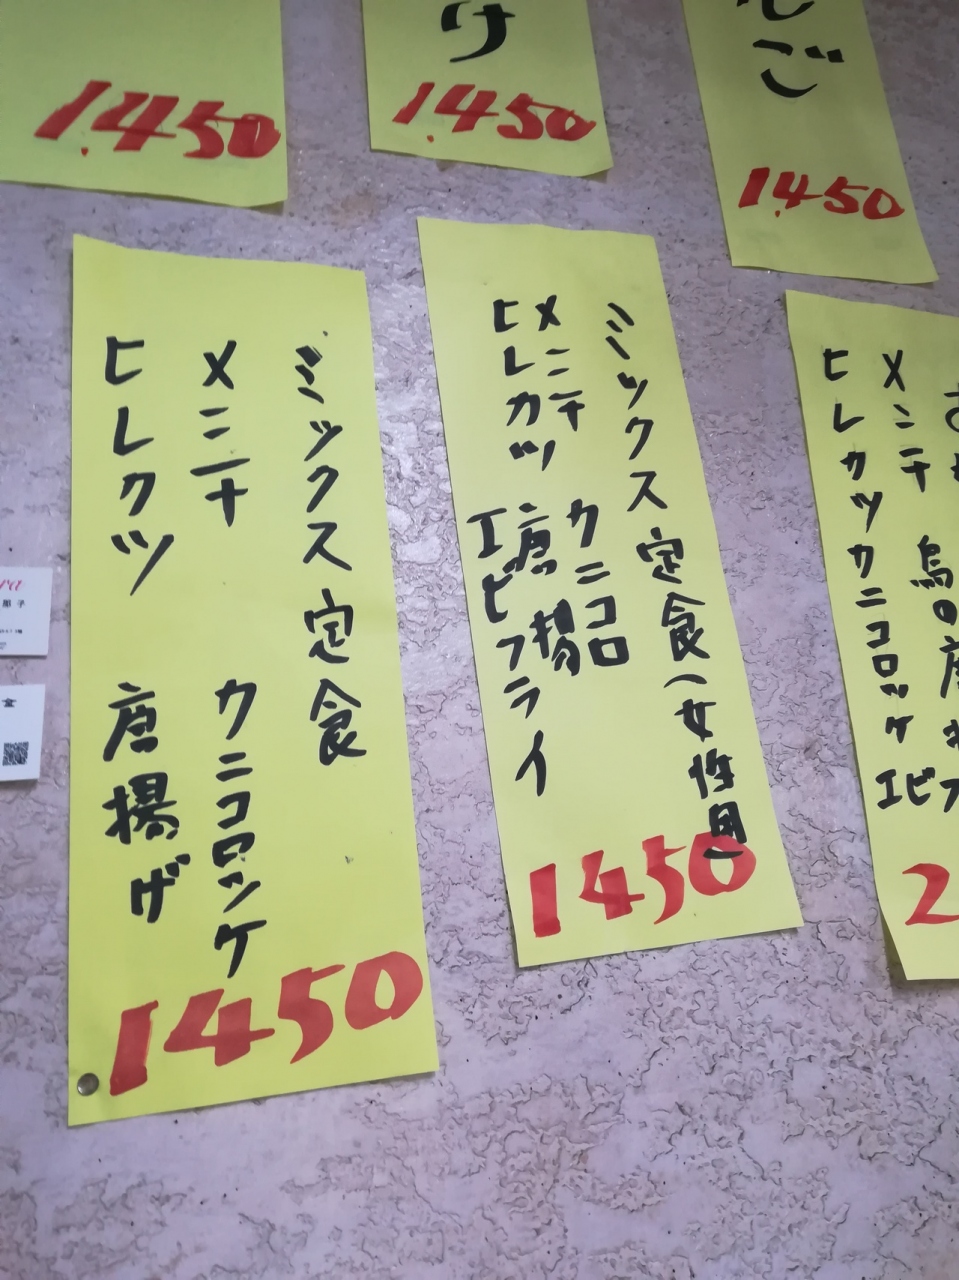 1.450
け
1.450
んご
1.450
ミックス定食
メニチ カニコロッケ
ヒレカツ 唐揚げ
1450
ミックス定食(女性用)
メニチ カニコロ
ヒレカツ 唐揚
エビフライ
1450
烏の唐
メニチ
ヒレカツカニコロッケ エビフ
2